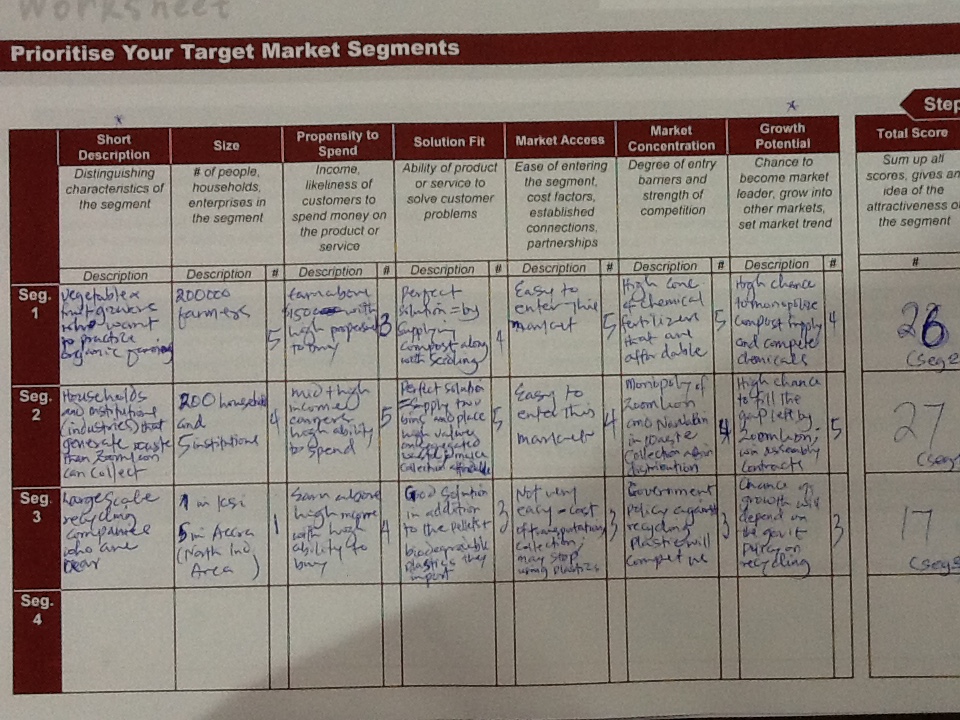 Worksheet
Prioritise Your Target Market Segments
Step
Short Description
Size
Propensity to Spend
Solution Fit
Market Access
Market Concentration
Growth Potential
Total Score
Distinguishing characteristics of the segment
# of people, households, enterprises in the segment
Income, likeliness of customers to spend money on the product or service
Ability of product or service to solve customer problems
Ease of entering the segment, cost factors, established connections, partnerships
Degree of entry barriers and strength of competition
Chance to become market leader, grow into other markets, set market trend
Sum up all scores, gives an idea of the attractiveness of the segment
Description
Description #
Description #
Description #
Description #
Description #
Description #
#
Seg. 1
vegetable &
fruit growers
who want
to practice
organic farming
farmers
5
earn above
with
high
to buy
3
Perfect
solution = by
supplying
compost along
with seedling
4
Easy to
enter this
5
High conc
of chemical
fertilizers
that are
affordable
5
High chance
to monopolize
compost supply
and compete
chemicals
4
Seg. 2
Households
and institutions
(industries) that
generate waste
than Zoomlion
can collect
200 household
and
5 institutions
4
mid + high
income
high ability
to spend
5
Perfect solution
= supply two
bins and place
high value on
5
Easy to
enter this
4
Monopoly of
Zoomlion
in waste
collection
distribution
4
High chance
to fill the
gap left by
Zoomlion,
win assembly
contracts
5
27
Seg. 3
Large scale
recycling
companies
who are
near
1 in
5 in Accra
(North Ind
Area)
1
above
high income
with high
ability to
buy
4
Good solution
in addition
to the pellets +
biodegradable
plastics they
import
3
Not very
easy - cost
of transportation
collection,
may stop
using plastics
3
Government
policy against
recycling
plastic will
3
Chance of
growth will
depend on
the gov't
policy on
recycling
3
17
Seg. 4